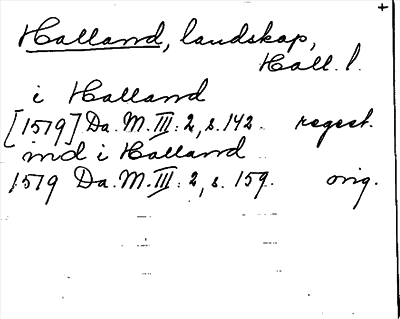 +
Halland, landskap,
Hall. l.
i Halland
[1519] Da. M. III: 2, s. 142. regest.
ind i Halland
1519 Da. M. III: 2, s. 159. orig.